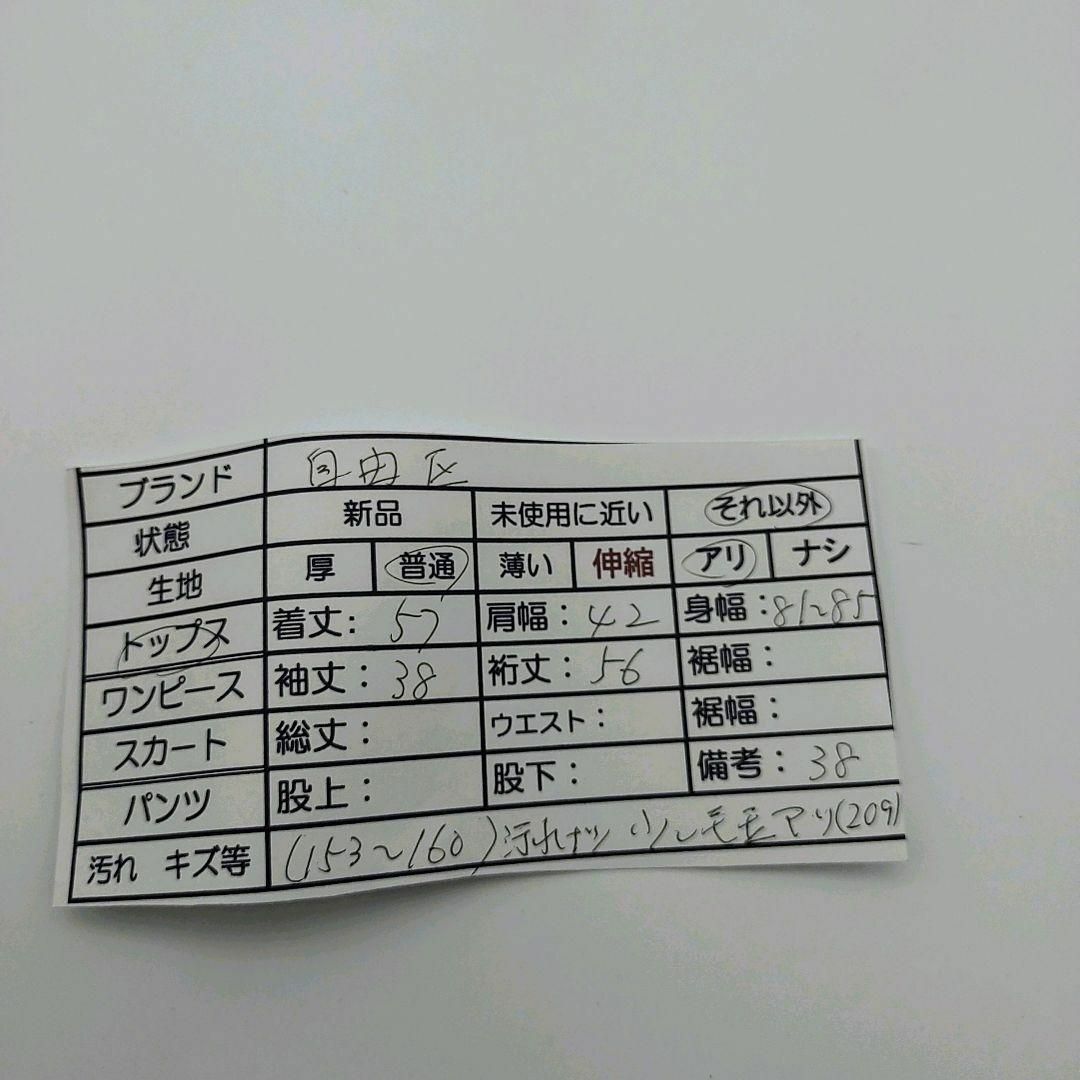 ブランド 自由区
状態 新品 未使用に近い それ以外
生地 厚 普通 薄い 伸縮 アリ ナシ
トップス 着丈: 57 肩幅: 42 身幅: 81~85
ワンピース 袖丈: 38 裄丈: 56 裾幅:
スカート 総丈: ウエスト: 裾幅:
パンツ 股上: 股下: 備考: 38
汚れ キズ等 (153~160) 汚れナシ 少し毛玉アリ(209)